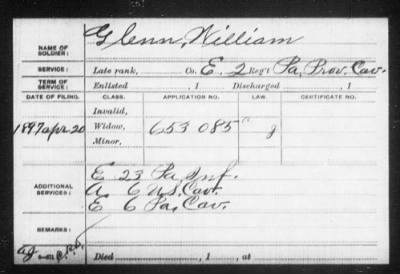 NAME OF SOLDIER: Glenn, William
SERVICE: Late rank, Co. E, 2 Reg't Pa. Prov. Cav.
TERM OF SERVICE: Enlisted , 1 Discharged , 1
DATE OF FILING. CLASS. APPLICATION NO. LAW. CERTIFICATE NO.
Invalid,
1897 Apr. 20 Widow, 653 085 g
Minor,
ADDITIONAL SERVICES: E 23 Pa. Inf.
A 6 U.S. Cav.
E 6 Pa. Cav.
REMARKS:
Died , 1 , at